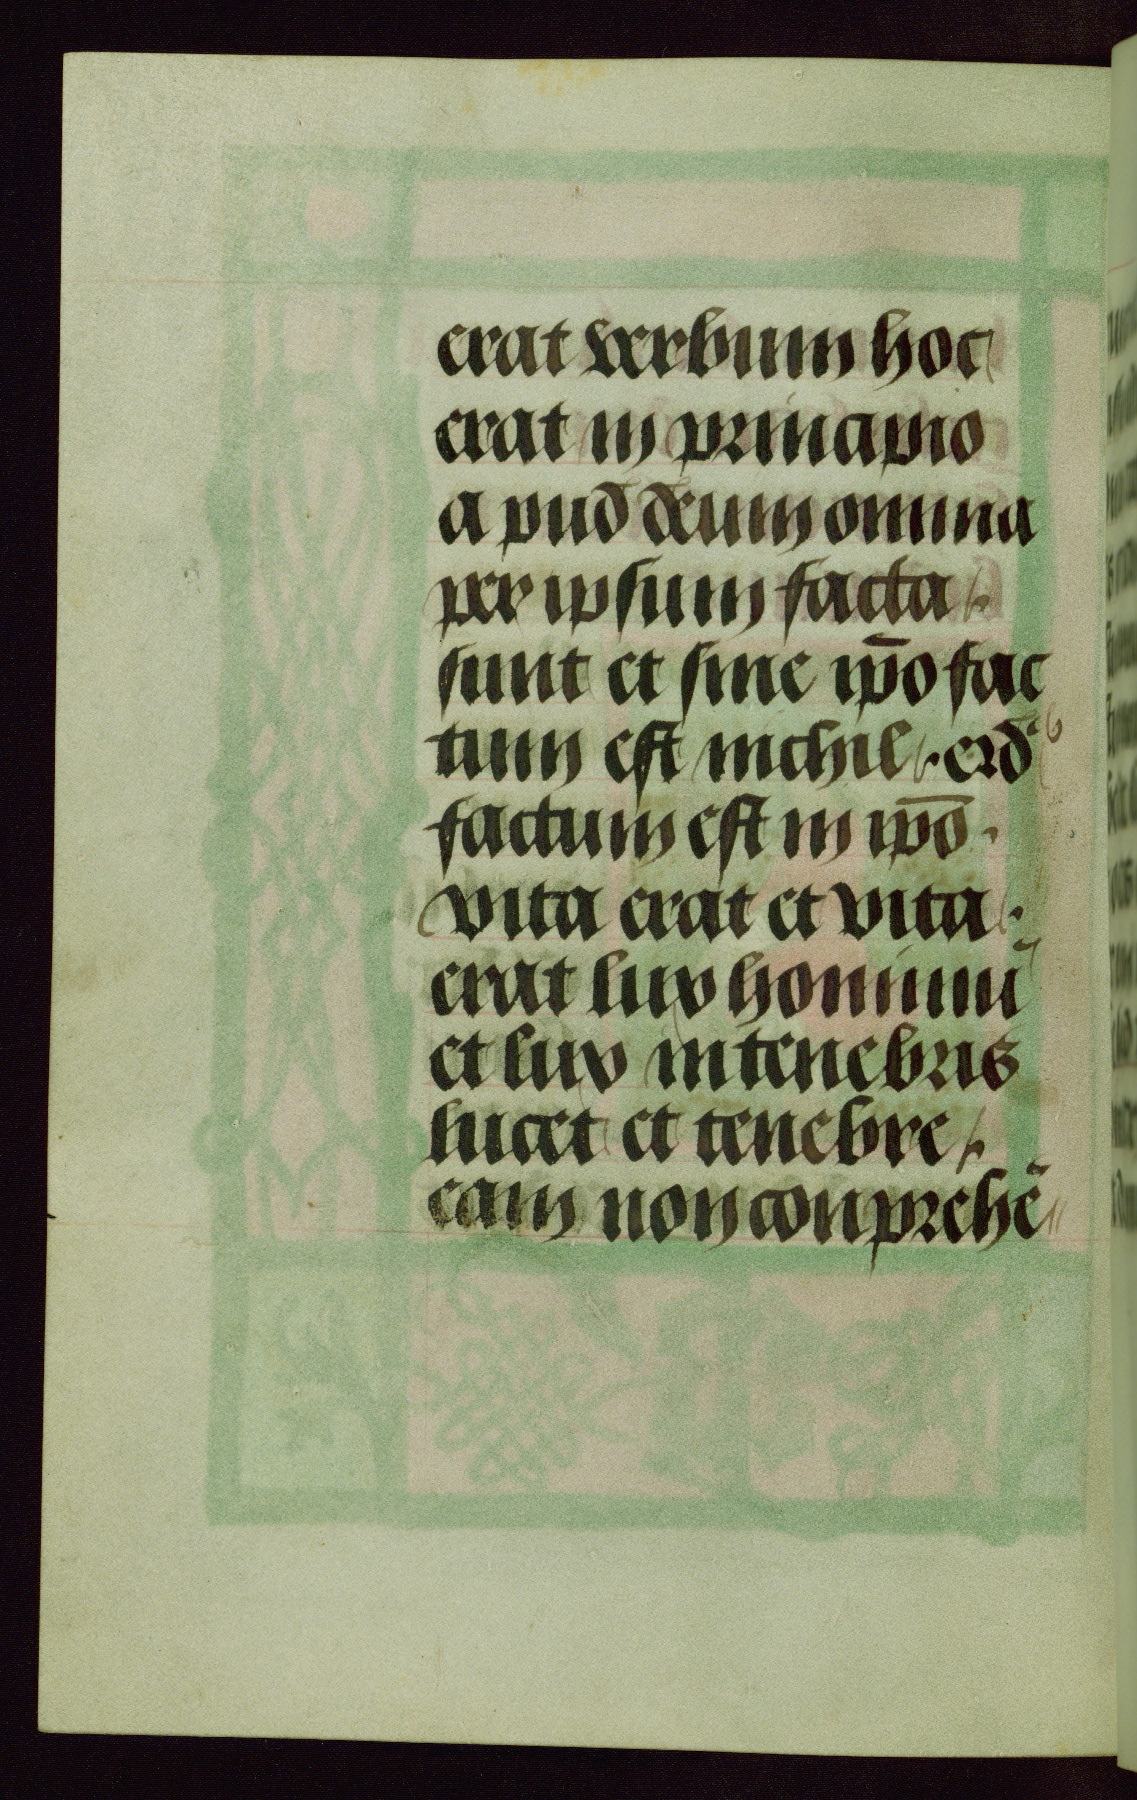 erat verbum hoc
erat in principio
a pud deum omnia
per ipsum facta
sunt et sine ip̄o fac
tum est nichil · 
factum est in ip̄o ·
vita erat et vita ·
erat lux hominū
et lux in tenebris
lucet et tenebre
eam non conprehē